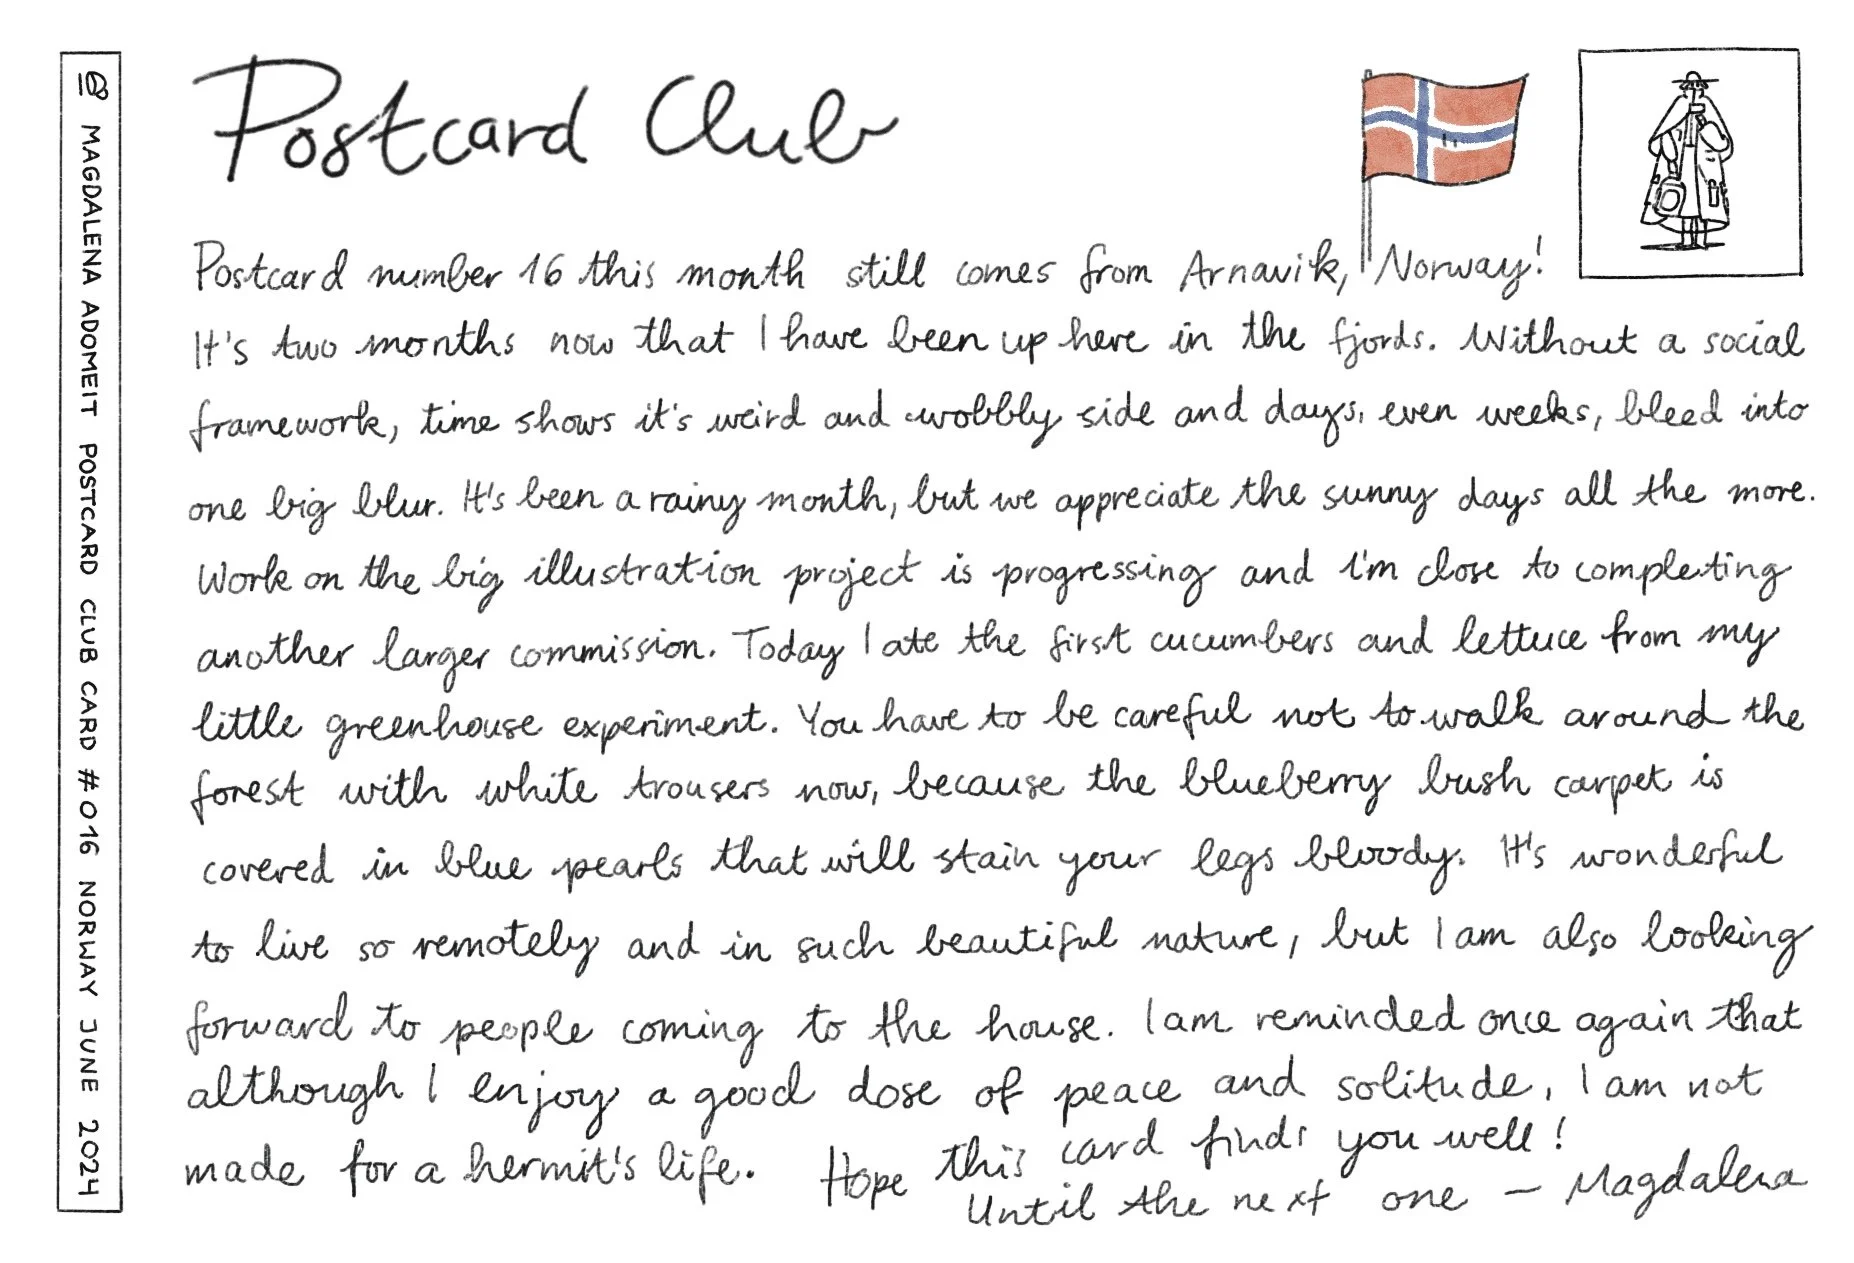 Postcard Club
Postcard number 16 this month still comes from Arnavik, Norway!
It's two months now that I have been up here in the fjords. Without a social
framework, time shows it's weird and wobbly side and days, even weeks, bleed into
one big blur. It's been a rainy month, but we appreciate the sunny days all the more.
Work on the big illustration project is progressing and I'm close to completing
another larger commission. Today I ate the first cucumbers and lettuce from my
little greenhouse experiment. You have to be careful not to walk around the
forest with white trousers now, because the blueberry bush carpet is
covered in blue pearls that will stain your legs bloody. It's wonderful
to live so remotely and in such beautiful nature, but I am also looking
forward to people coming to the house. I am reminded once again that
although I enjoy a good dose of peace and solitude, I am not
made for a hermit's life. Hope this card finds you well!
Until the next one – Magdalena
MAGDALENA ADOMEIT POSTCARD CLUB CARD #016 NORWAY JUNE 2024